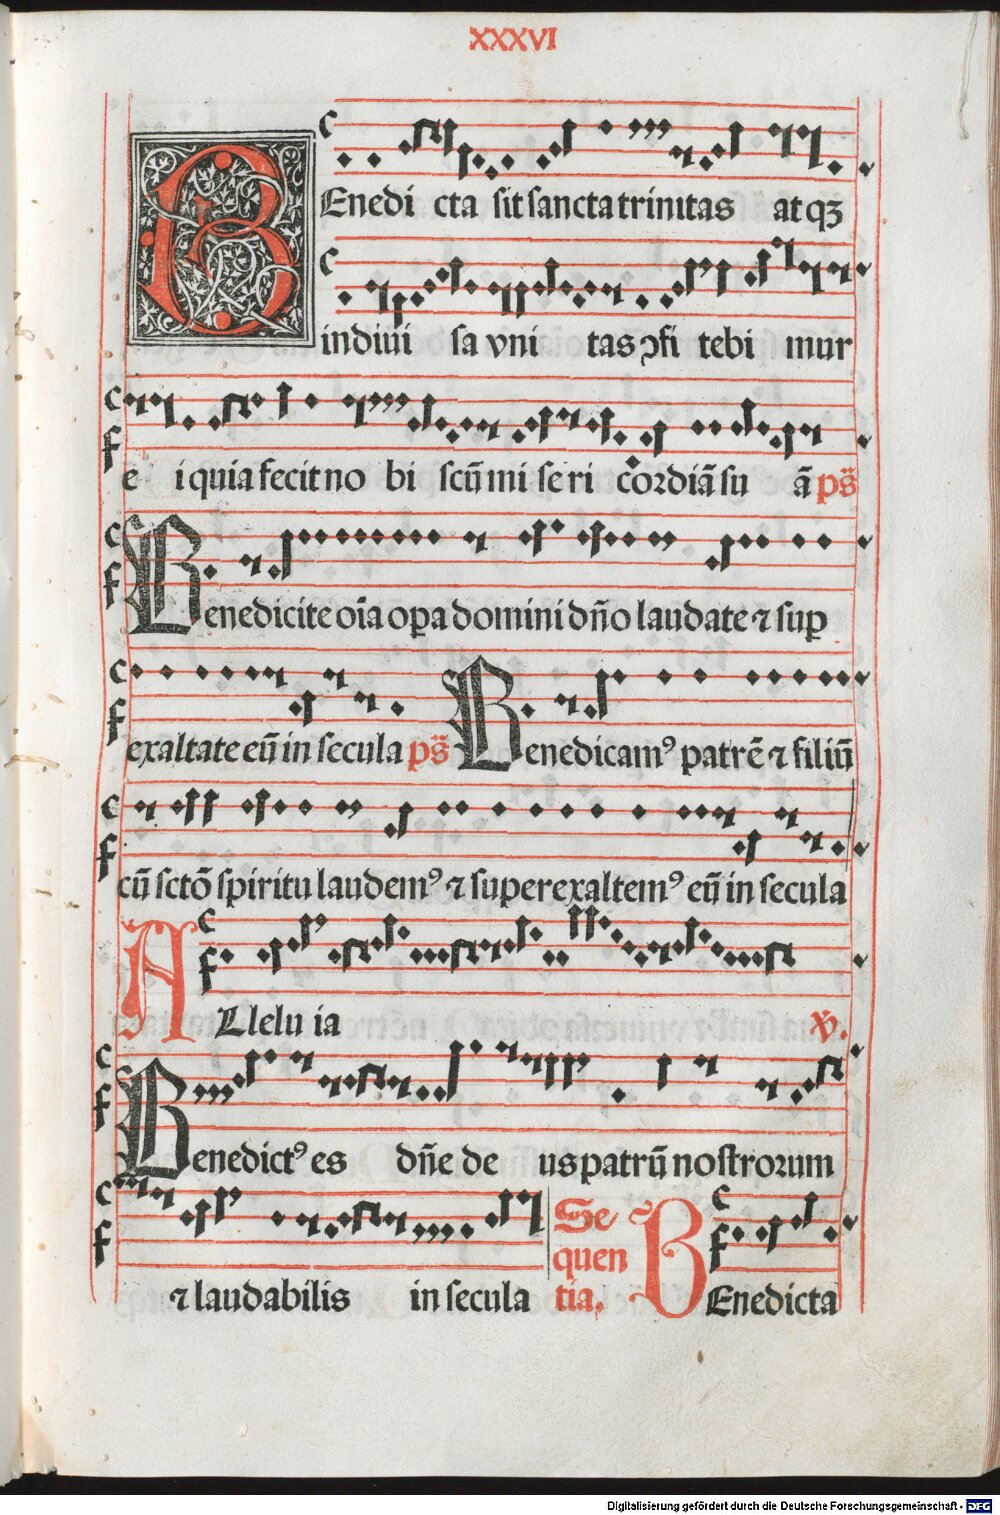 XXXVI
BEnedi cta sit sancta trinitas at qꝫ
indiui sa vni tas ↄfi tebi mur
e i quia fecit no bi scū mi se ri cordiā su ā ps̄
Benedicite oīa oꝑa domini dn̄o laudate ⁊ suꝑ
exaltate eū in secula ps̄ Benedicamꝰ patrē ⁊ filiū
cū sctō spiritu laudemꝰ ⁊ superexaltemꝰ eū in secula
ALlelu ia ꝟ.
Benedictꝰ es dn̄e de us patrū nostrorum
⁊ laudabilis in secula Se
quen
tia. BEnedicta
Digitalisierung gefördert durch die Deutsche Forschungsgemeinschaft - DFG